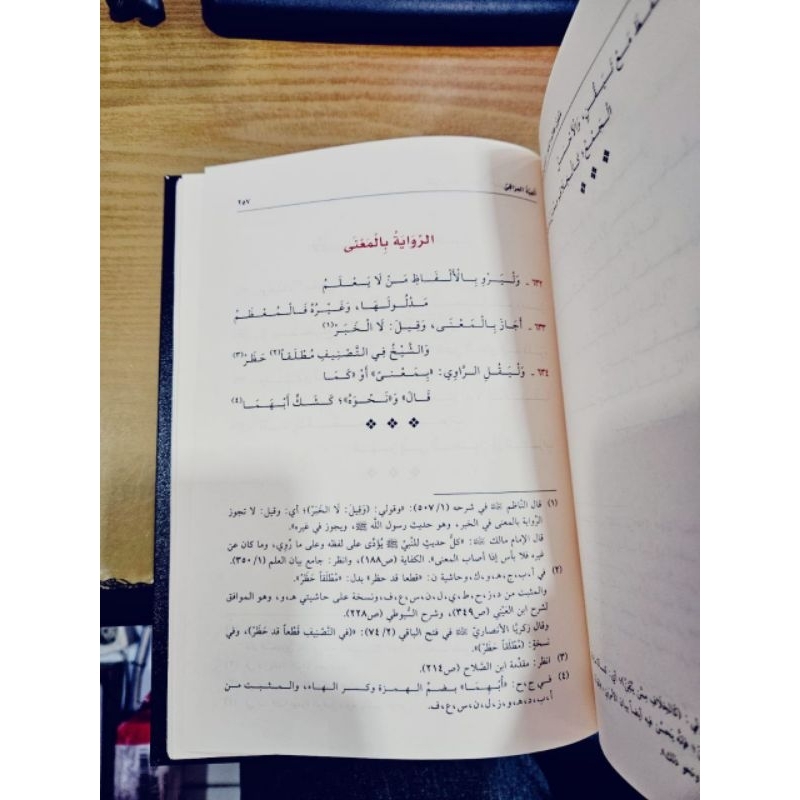 ألفية العراقي
٢٥٧
الرِّوَايَةُ بِالْمَعْنَى
٦٣٢ ـ وَلْيَرْوِ بِالْأَلْفَاظِ مَنْ لَا يَعْلَمُ
مَدْلُولَهَا، وَغَيْرُهُ فَالْمُعْظَمُ
٦٣٣ ـ أَجَازَ بِالْمَعْنَى، وَقِيلَ: لَا الْخَبَرْ(١)
وَالشَّيْخُ فِي التَّصْنِيفِ مُطْلَقاً(٢) حَظَرْ(٣)
٦٣٤ ـ وَلْيَقُلِ الرَّاوِي: «بِمَعْنىً» أَوْ «كَمَا
قَالَ» وَ«نَحْوَهُ»؛ كَشَكٍّ أَبْهَمَا(٤)
(١) قال النَّاظم ﵀ في شرحه (٥٠٧/١): «وقولي: (وَقِيلَ: لَا الخَبَرْ)؛ أي: وقيل: لا تجوز
الرِّواية بالمعنى في الخبر، وهو حديث رسول الله ﷺ، ويجوز في غيره».
قال الإمام مالك ﵀: «كلُّ حديثٍ للنَّبيِّ ﷺ يُؤدَّى على لفظه وعلى ما رُوِي، وما كان عن
غيره، فلا بأس إذا أصاب المعنى». الكفاية (ص١٨٨)، وانظر: جامع بيان العلم (٣٥٠/١).
(٢) في أ، ب، ج، هـ، و، ك، وحاشية ن: «قطعاً قد حظر» بدل: «مُطْلَقاً حَظَرْ».
والمثبت من د، ز، ح، ط، ي، ل، ن، س، ع، ف، ونسخة على حاشيتي هـ، و، وهو الموافق
لشرح ابن العَيْنِي (ص٣٤٩)، وشرح السُّيوطي (ص٢٢٨).
وقال زكريَّا الأنصاريّ ﵀ في فتح الباقي (٧٤/٢): «(في التَّصْنِيفِ قَطْعاً قد حَظَرْ)، وفي
نسخةٍ: (مُطْلَقاً حَظَرْ)».
(٣) انظر: مقدّمة ابن الصَّلاح (ص٢١٤).
(٤) في ج، ح: «أُبْهِمَا» بضمِّ الهمزة وكسر الهاء، والمثبت من
أ، ب، د، هـ، و، ز، ل، ن، س، ع، ف.